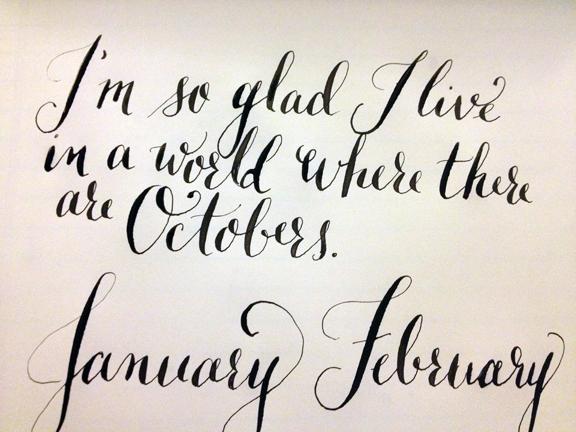 I'm so glad I live
in a world where there
are Octobers.
January February